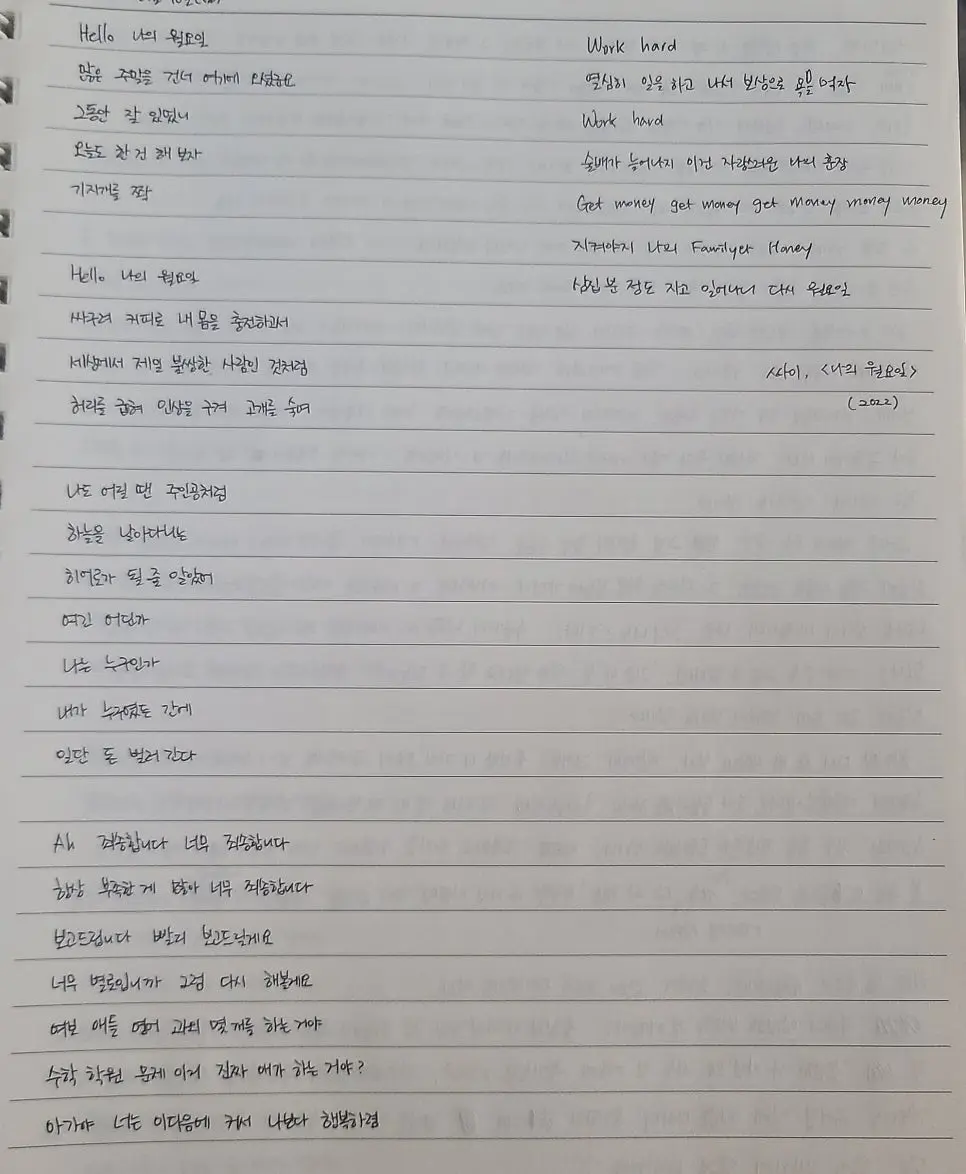 Hello 나의 월요일
많은 주막을 건너 여기에 오셨군요
그동안 잘 있었니
오늘도 한 건 해 보자
기지개를 쫙
Hello 나의 월요일
싸구려 커피로 내 몸을 충전하고서
세상에서 제일 불쌍한 사람인 것처럼
허리를 굽혀 인상을 구겨 고개를 숙여
나도 어릴 땐 주인공처럼
하늘을 날아다니는
히어로가 될 줄 알았어
여긴 어딘가
나는 누구인가
내가 누구였든 간에
일단 돈 벌러 간다
Ah 죄송합니다 너무 죄송합니다
항상 부족한 게 많아 너무 죄송합니다
보고드립니다 빨리 보고드릴게요
너무 별로입니까 그럼 다시 해볼게요
여보 애들 영어 과외 몇 개를 하는 거야
수학 학원 문제 이거 진짜 애가 하는 거야?
아가야 너는 이다음에 커서 나보다 행복하렴
Work hard
열심히 일을 하고 나서 보상으로 목을 여자
Work hard
술배가 늘어나지 이건 자랑스러운 나의 훈장
Get money get money get money money money
지켜야지 나의 Family er Honey
삼십 분 정도 자고 일어나니 다시 월요일
싸이, <나의 월요일>
(2022)